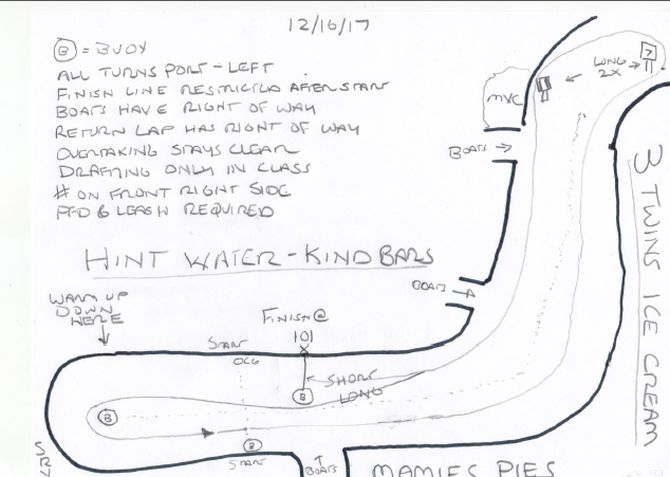 12/16/17
B = BUOY
ALL TURNS PORT - LEFT
FINISH LINE RESTRICTED AFTER START
BOATS HAVE RIGHT OF WAY
RETURN LAP HAS RIGHT OF WAY
OVERTAKING STAYS CLEAR
DRAFTING ONLY IN CLASS
# ON FRONT RIGHT SIDE
PFD & LEASH REQUIRED
HINT WATER - KIND BARS
7
LONG
2X
1
MYC
BOATS
BOATS
3 TWINS ICE CREAM
WARM UP
DOWN
HERE
FINISH @
101
START
OCG
SHORT
LONG
B
B
B
START
BOATS
SRV
MAMIES PIES